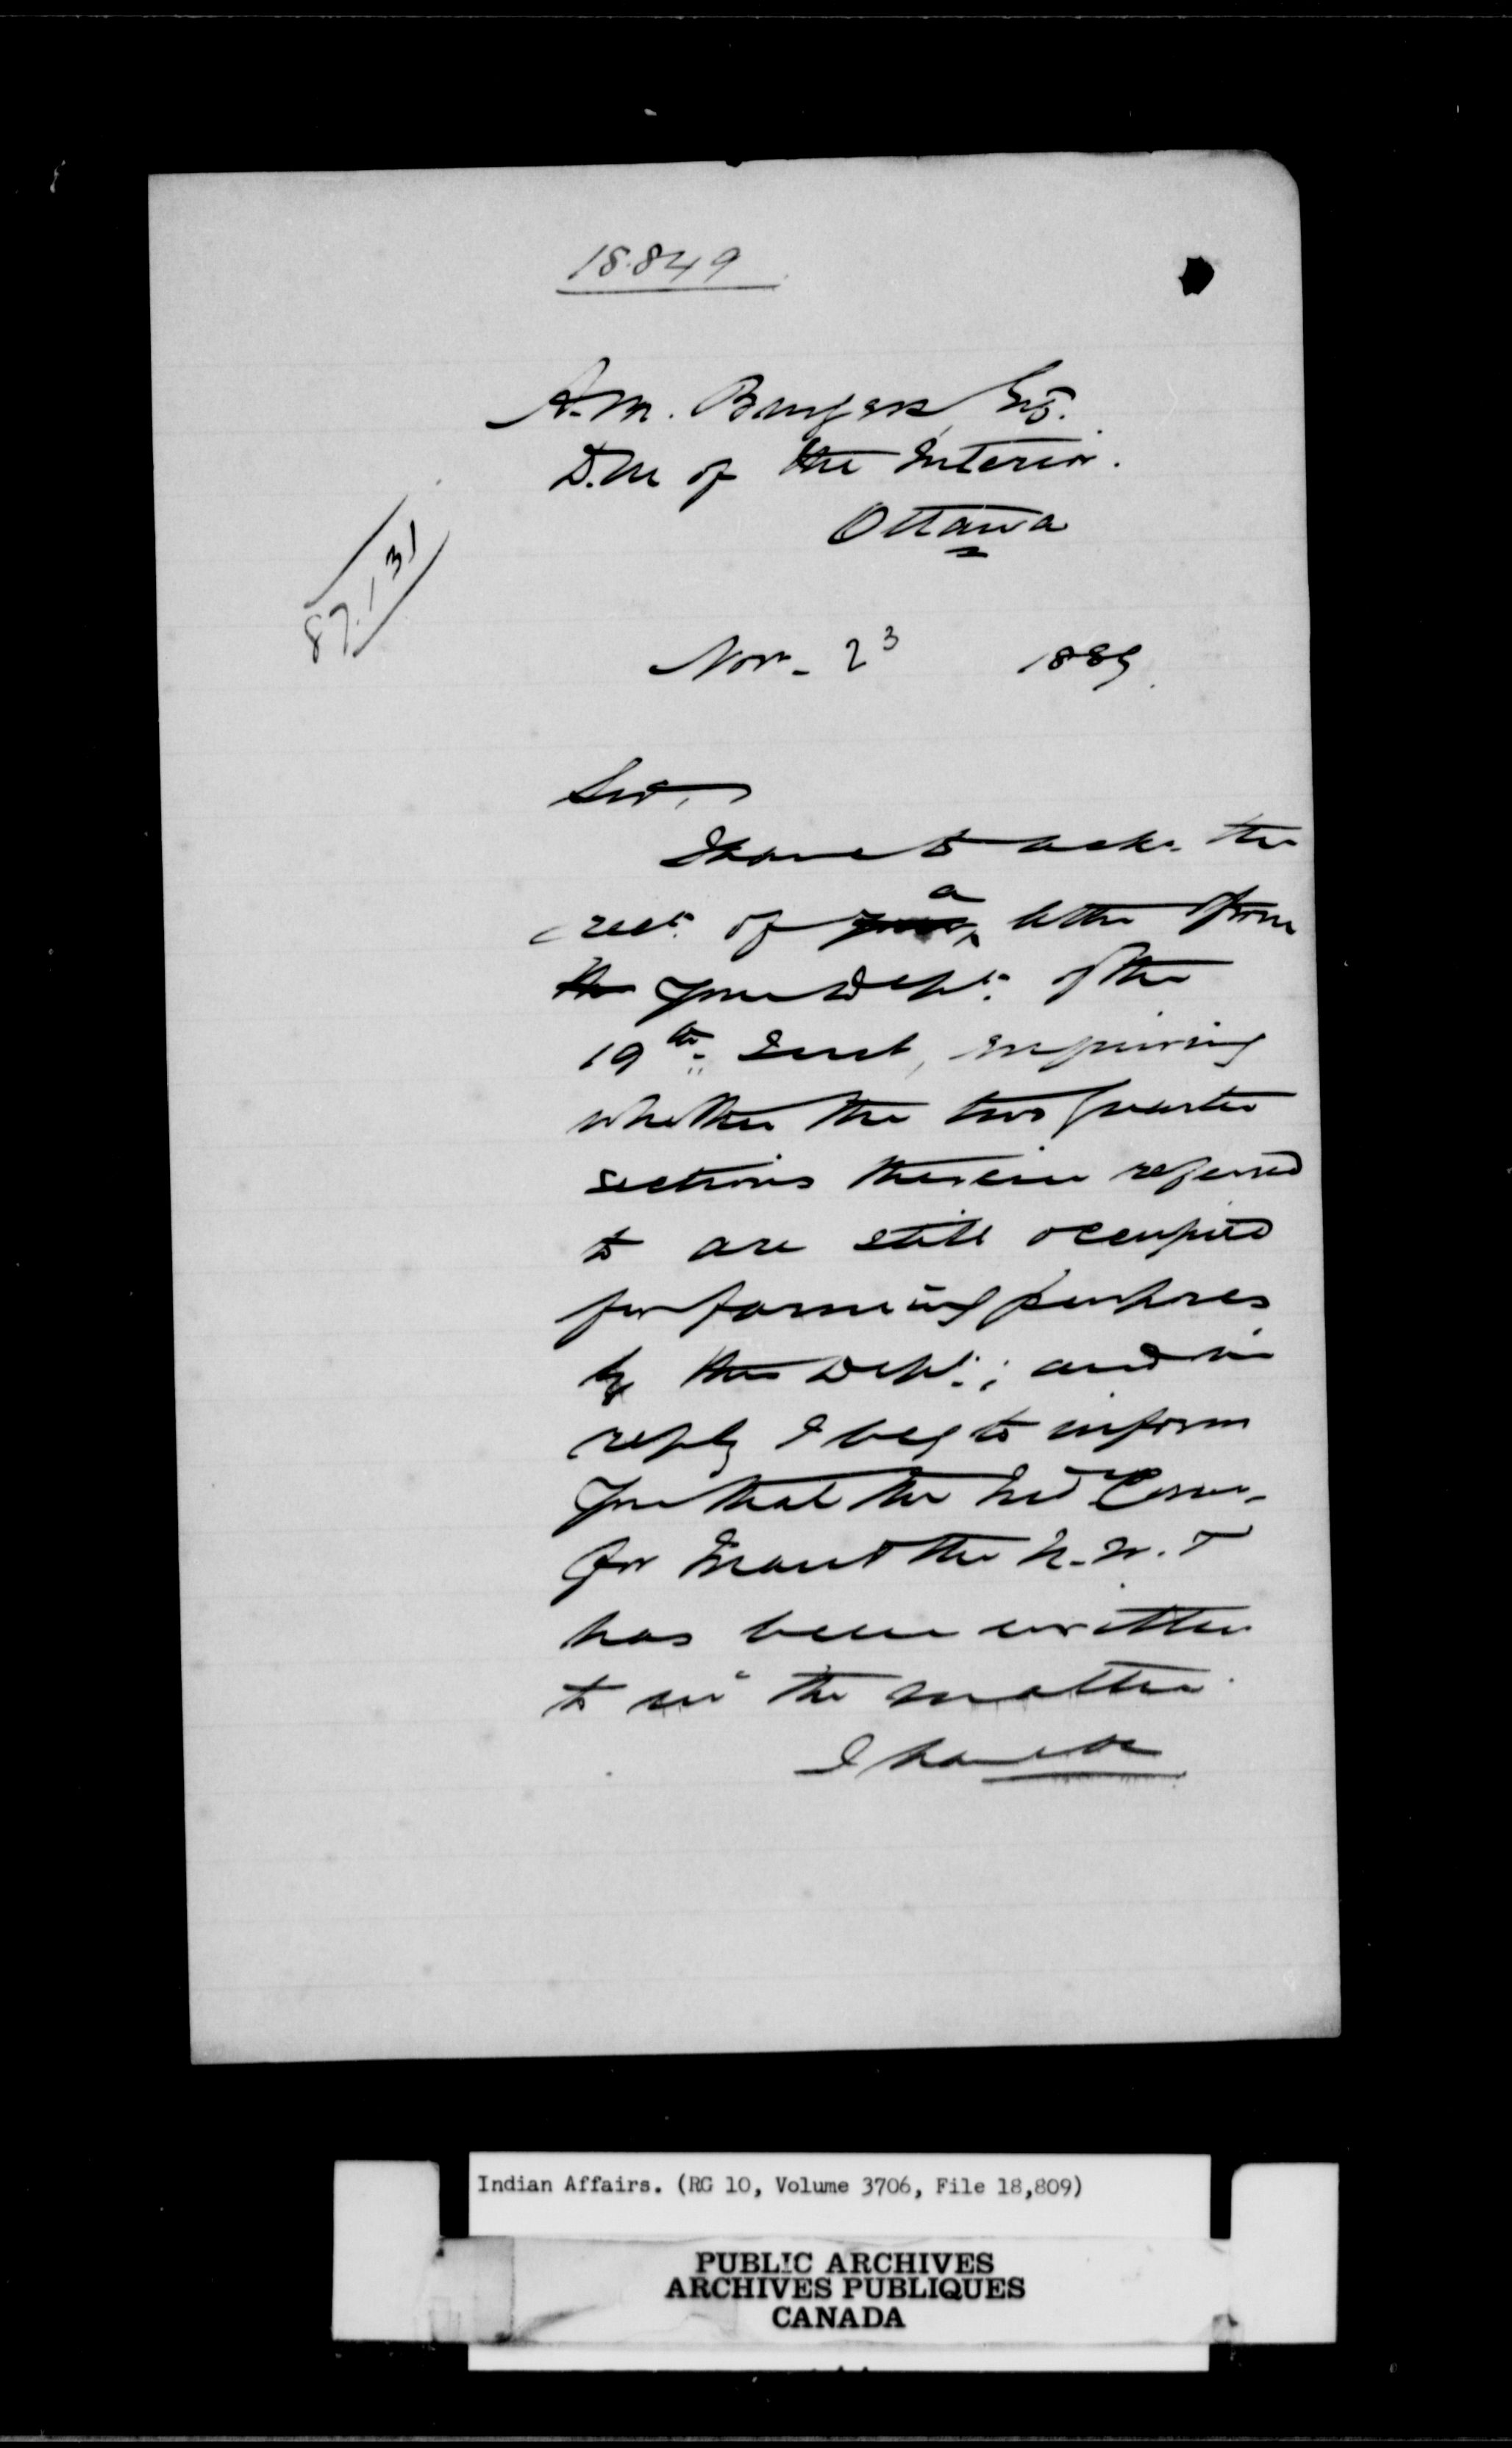 18.849
A.M. Burgess, Esq.
D.M of the Interior.
Ottawa
87.131
Nov. 23 1889
Sir,
I have to ackn. the
rect. of a letter from
the your Dept. of the
19th Inst, enquiring
whether the two quarter
sections therein referred
to are still occupied
for farming purposes
by this Dept.; and in
reply I beg to inform
you that the Ind Comr.
for Man & the N.W.T
has been written
to in the matter.
I have &c
Indian Affairs. (RG 10, Volume 3706, File 18,809)
PUBLIC ARCHIVES
ARCHIVES PUBLIQUES
CANADA